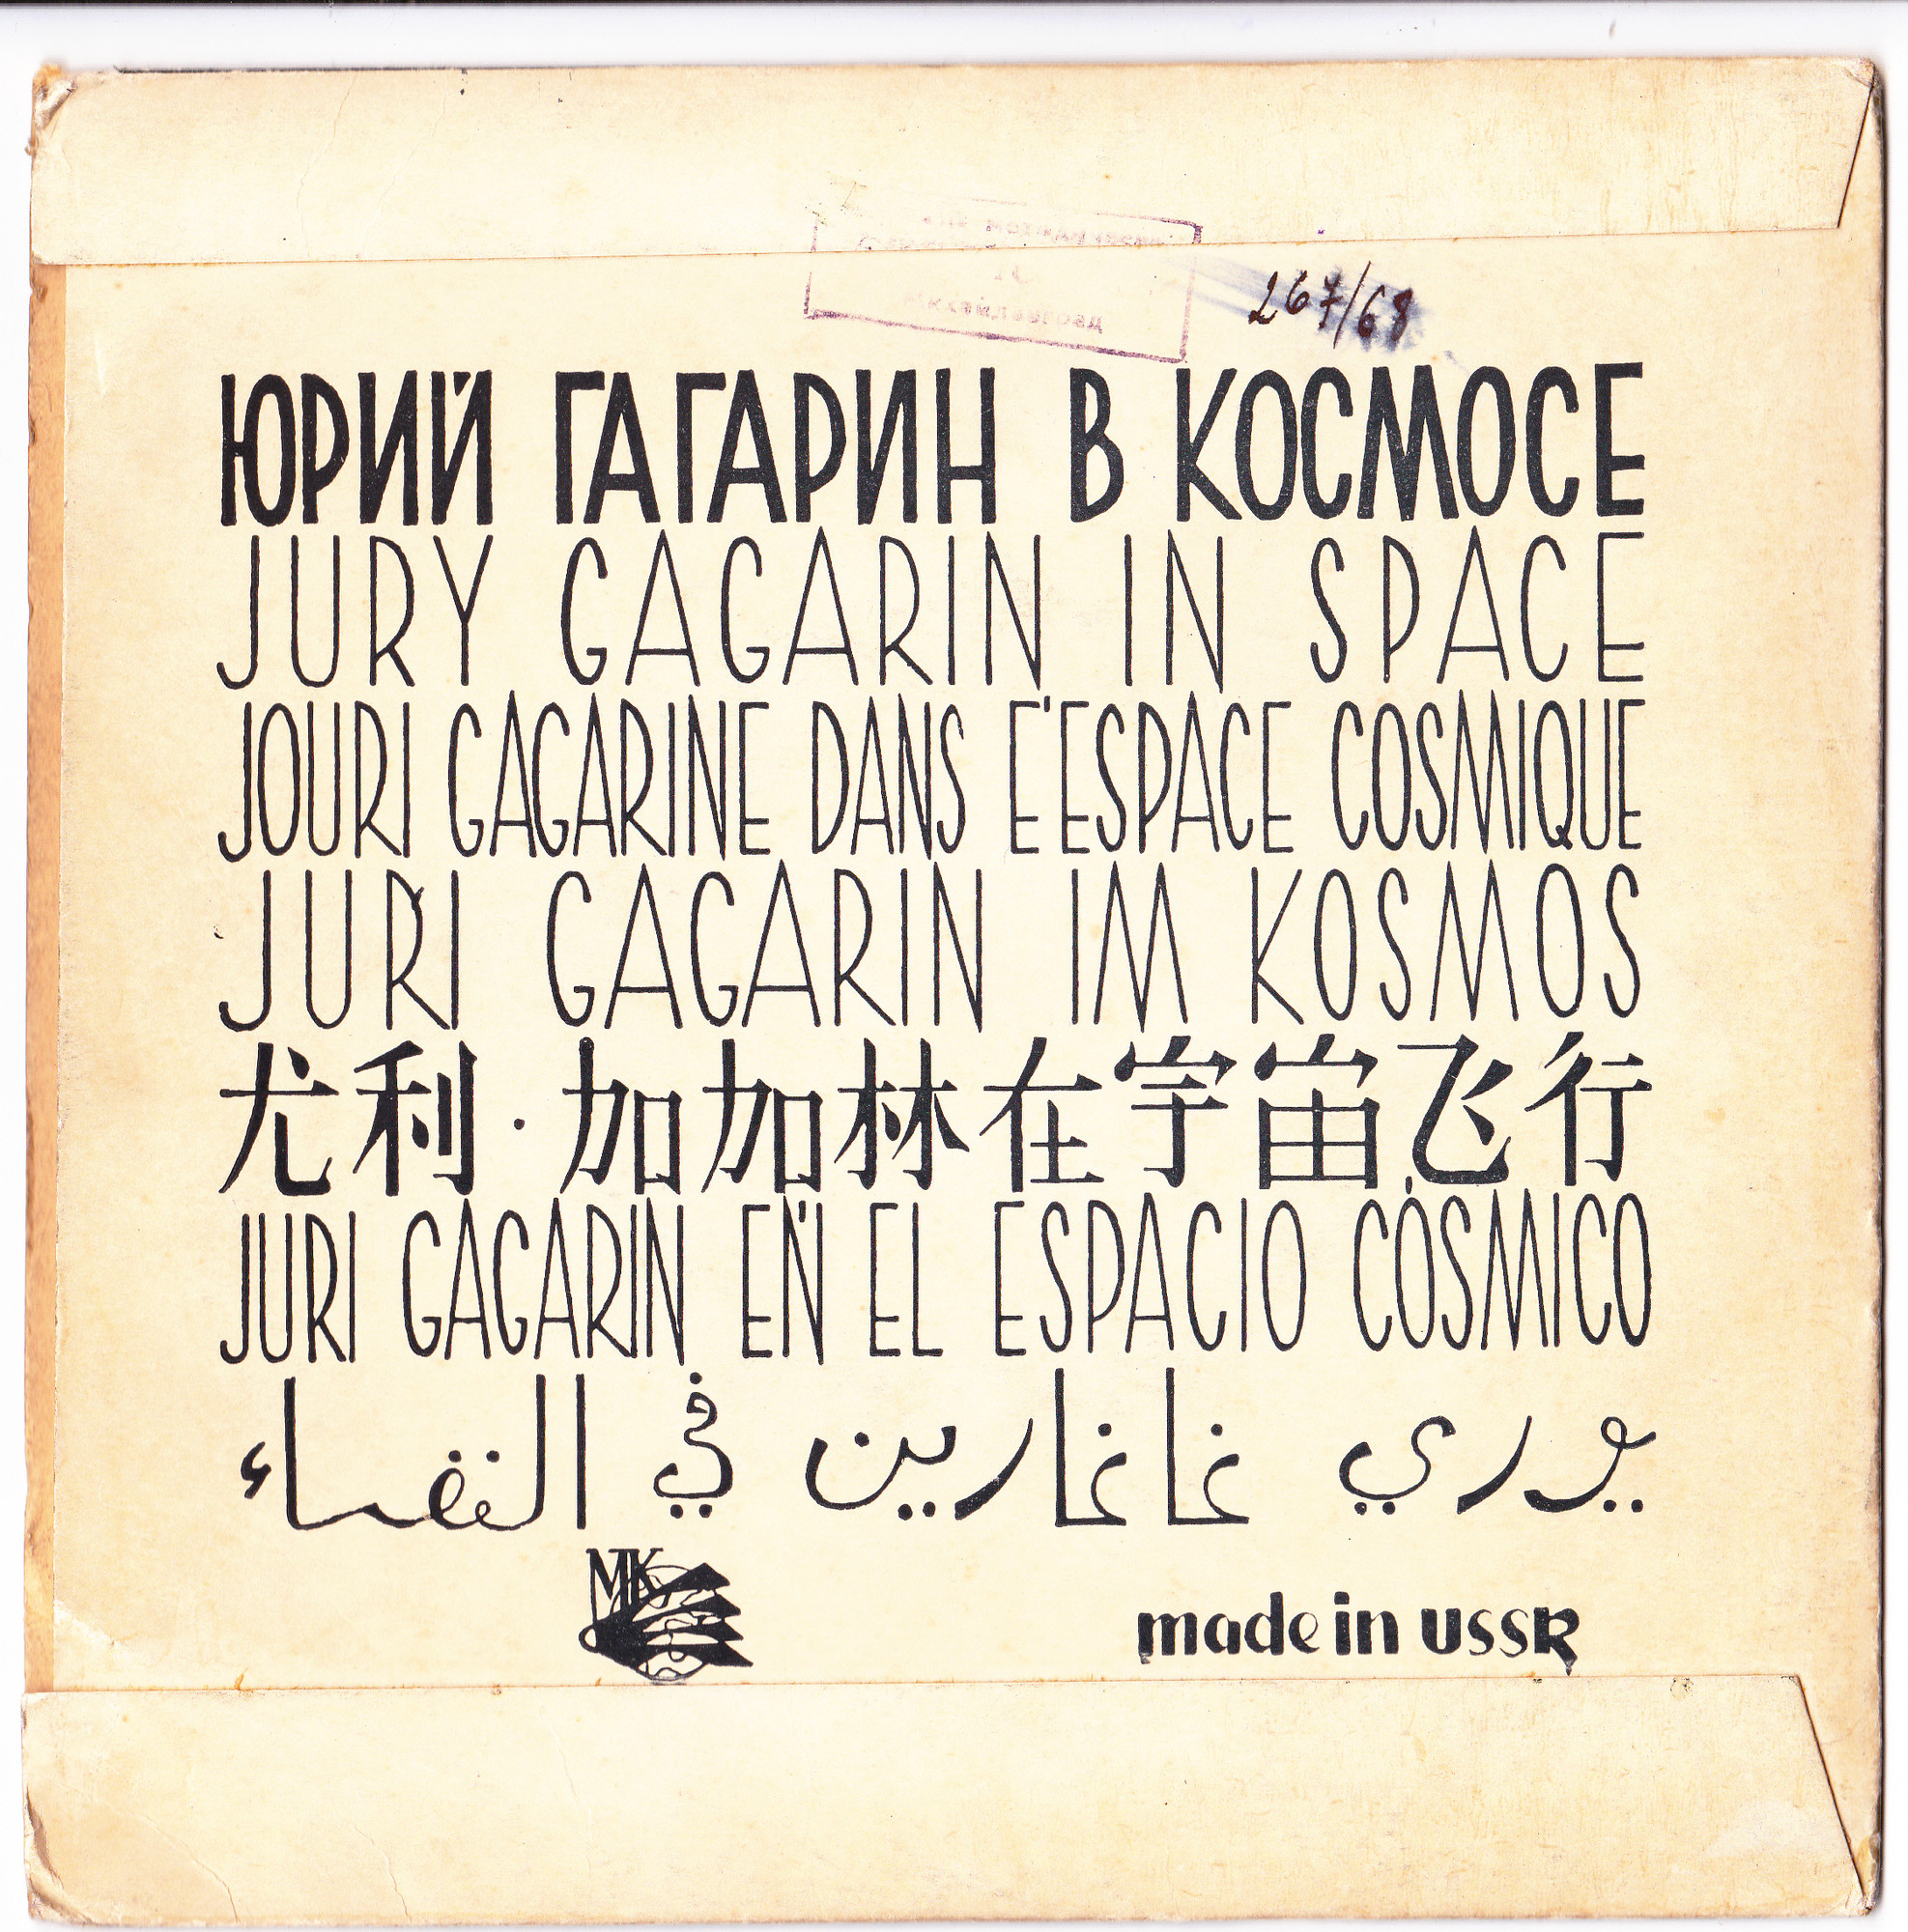 267/68
ЮРИЙ ГАГАРИН В КОСМОСЕ
JURY GAGARIN IN SPACE
JOURI GAGARINE DANS E'ESPACE COSMIQUE
JURI GAGARIN IM KOSMOS
尤利·加加林在宇宙飞行
JURI GAGARIN EN EL ESPACIO CÓSMICO
يوري غاغارين في الفضاء
MK
made in USSR